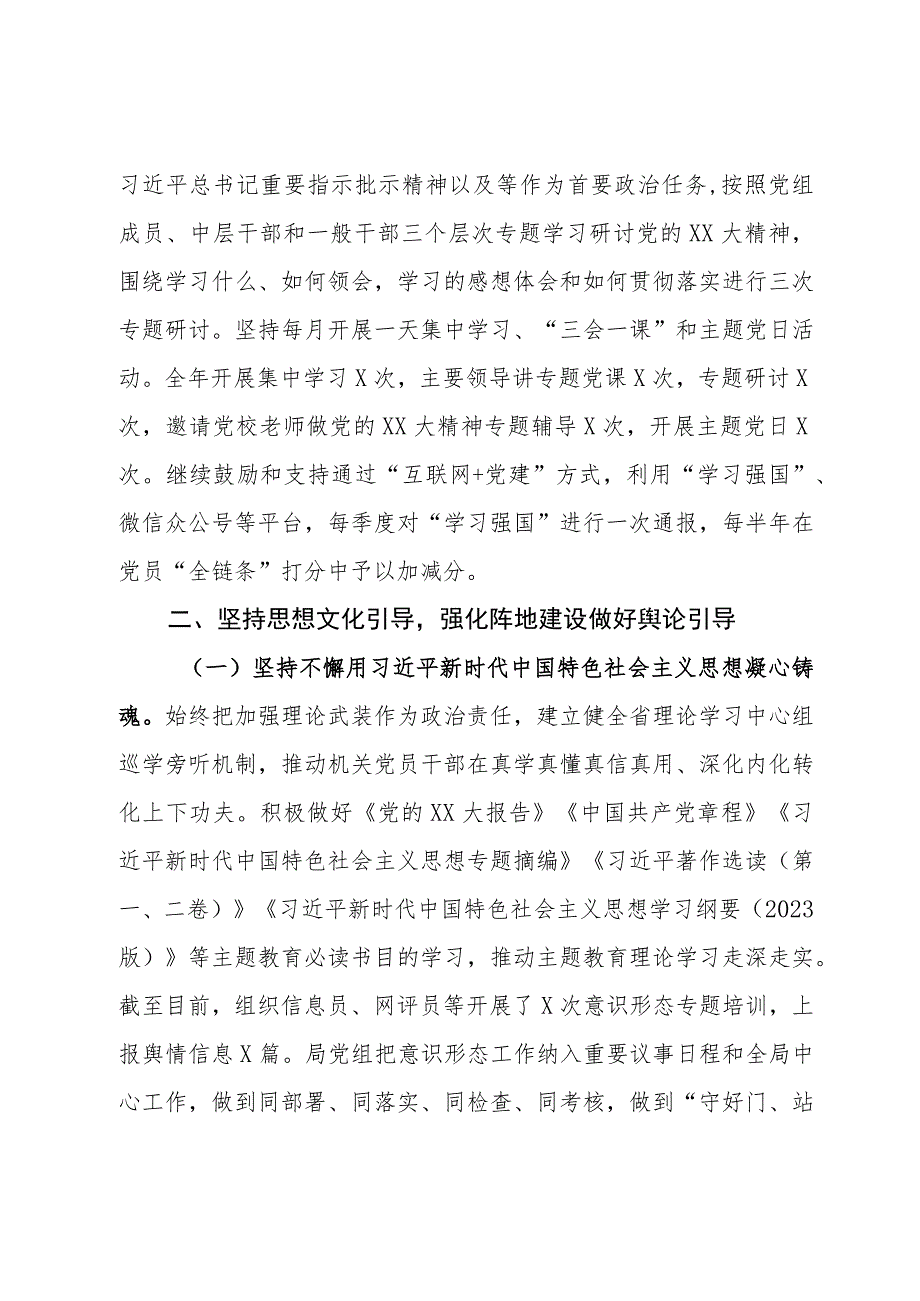 习近平总书记重要指示批示精神以及等作为首要政治任务,按照党组
成员、中层干部和一般干部三个层次专题学习研讨党的XX大精神，
围绕学习什么、如何领会，学习的感想体会和如何贯彻落实进行三次
专题研讨。坚持每月开展一天集中学习、“三会一课”和主题党日活
动。全年开展集中学习X次，主要领导讲专题党课X次，专题研讨X
次，邀请党校老师做党的XX大精神专题辅导X次，开展主题党日X
次。继续鼓励和支持通过“互联网+党建”方式，利用“学习强国”、
微信众公号等平台，每季度对“学习强国”进行一次通报，每半年在
党员“全链条”打分中予以加减分。
二、坚持思想文化引导，强化阵地建设做好舆论引导
（一）坚持不懈用习近平新时代中国特色社会主义思想凝心铸
魂。始终把加强理论武装作为政治责任，建立健全省理论学习中心组
巡学旁听机制，推动机关党员干部在真学真懂真信真用、深化内化转
化上下功夫。积极做好《党的XX大报告》《中国共产党章程》《习
近平新时代中国特色社会主义思想专题摘编》《习近平著作选读（第
一、二卷）》《习近平新时代中国特色社会主义思想学习纲要（2023
版）》等主题教育必读书目的学习，推动主题教育理论学习走深走实。
截至目前，组织信息员、网评员等开展了X次意识形态专题培训，上
报舆情信息X篇。局党组把意识形态工作纳入重要议事日程和全局中
心工作，做到同部署、同落实、同检查、同考核，做到“守好门、站